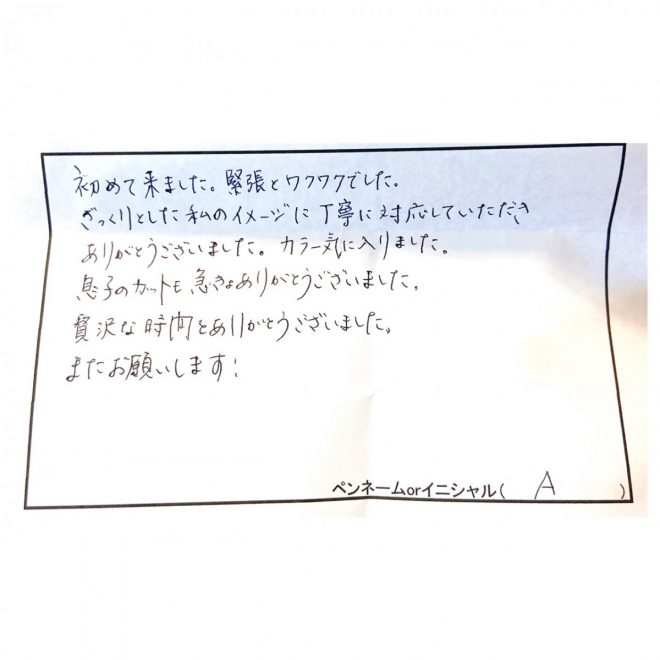 初めて来ました。緊張とワクワクでした。
ざっくりとした私のイメージに丁寧に対応していただき
ありがとうございました。カラー気に入りました。
息子のカットも急きょありがとうございました。
贅沢な時間をありがとうございました。
またお願いします!
ペンネームorイニシャル( A )